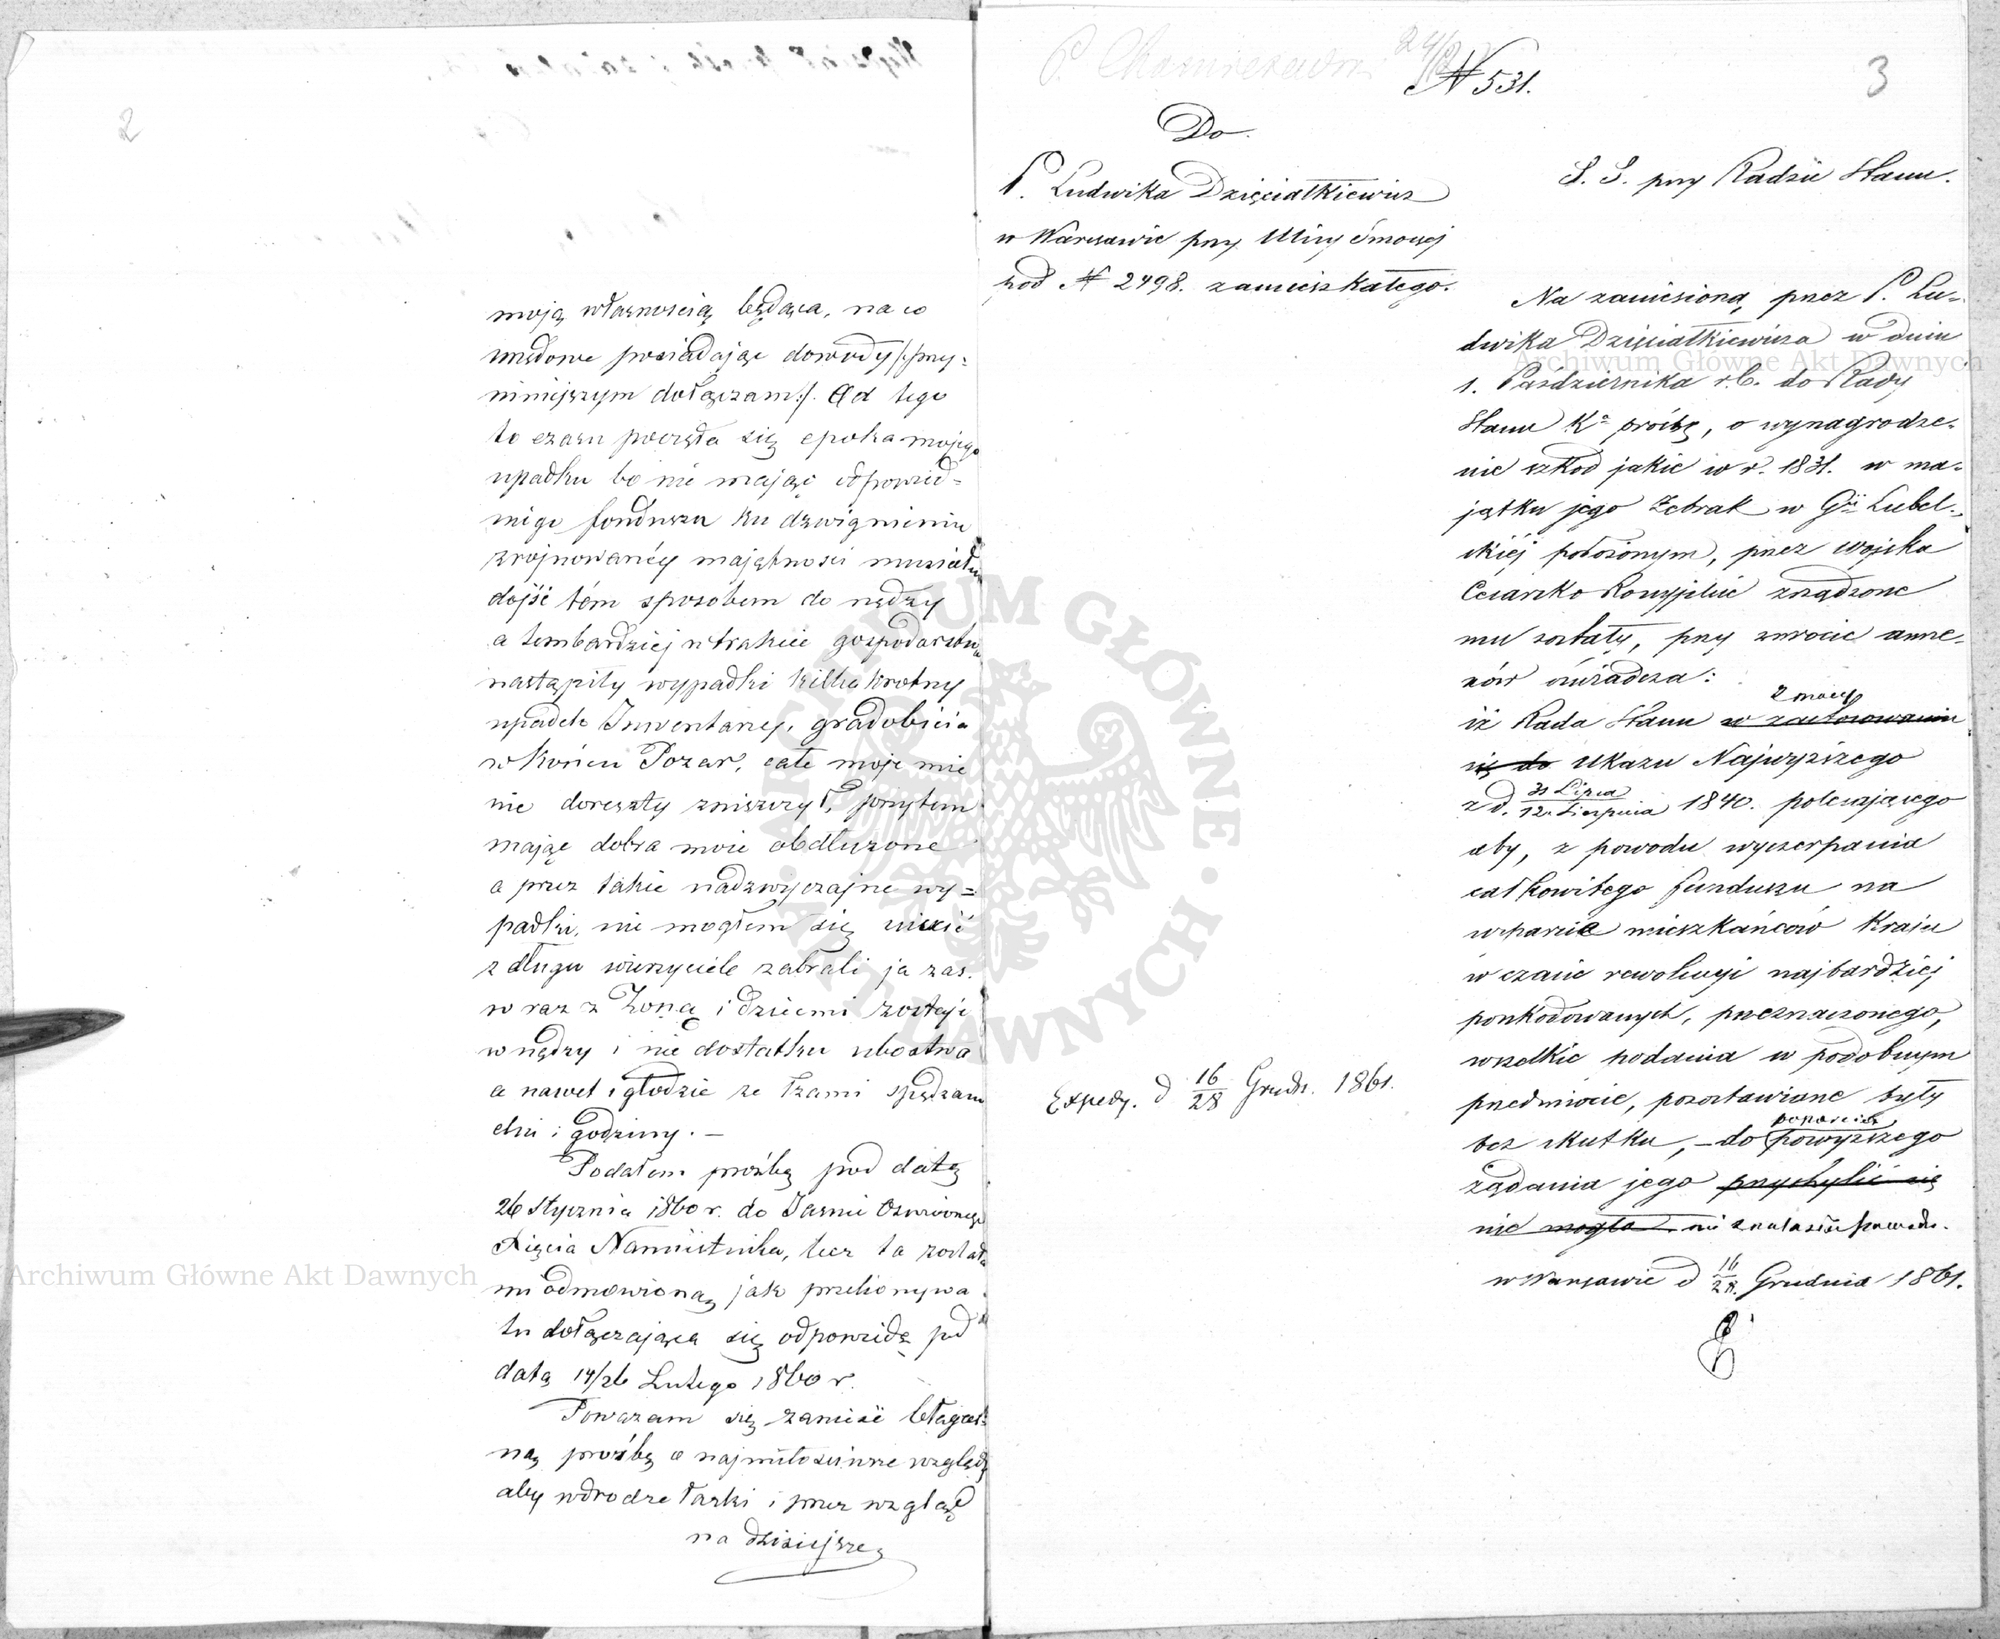 2
moją własnością będąca, na co
urzędowe posiadając dowody /: przy-
niniejszym dołączam :/. Od tego
to czasu poczęła się epoka mojego
upadku bo nie mając odpowied=
niego funduszu ku dzwignieniu
zrojnowanéy majętnosci musiałem
dojść tém sposobem do nędzy
a tembardziej w trakcie gospodarstwa
nastąpiły wypadki kilkakrotny
upadek Inwentarzy, gradobicia
w końcu Pozar, całe moje mie
nie doreszty zniszczył, przytem
mając dobra moie obdłuzone
a przez takie nadzwyczajne wy=
padki, nie mogłem się uiścić
z długu wierzyciele zabrali ja zas
w raz z Zoną i dziecmi zostaję
w nędzy i nie dostatku ubostwa
a nawet i głodzie ze łzami spędzam
dni i godziny. —
Podałem prośbę pod datą
26 Stycznia 1860 r. do Jasnie Oswieconego
Xięcia Namiestnika, lecz ta została
mi odmowioną, jak przekonywa
tu dołączająca się odpowiedź pod
datą 14/26 Lutego 1860 r.
Powazam się zanieść błagal=
ną prośbę o najmiłosiernie względy
aby w drodze łaski i przez wzgląd
na dzisiejsze
3
N 531.
Do
P. Ludwika Dzięciatkiewicz
w Warszawie przy Ulicy Smoczej
pod N 2498. zamieszkałego.
S. S. przy Radzie Stanu.
Na zaniesioną, przez P. Lu-
dwika Dzięciatkiewicza w dniu
1. Pazdziernika r.b. do Rady
Stanu Ka prośbę, o wynagrodze-
nie szkod jakie w r. 1831. w ma-
jątku jego Żebrak w Gii Lubel-
skiéj położonym, przez wojska
Cesarsko Rossyjskie zrządzone
mu zostały, przy zwrocie anne-
xów oświadcza:
z mocy
iż Rada Stanu w zastosowaniu
się do Ukazu Najwyższego
z d. 31 Lipca / 12 Sierpnia 1840. polecającego
aby, z powodu wyczerpania
całkowitego funduszu na
wsparcie mieszkańców Kraju
w czasie rewolucyi najbardziej
poszkodowanych, przeznaczonego,
wszelkie podania w podobnym
przedmiocie, pozostawione były
bez skutku, — do powyższego
poparcia
żądania jego przychylić się
nie mogła nie znalazła powodu.
w Warszawie d 16/28 Grudnia 1861.
Expedy. d 16/28 Grudn. 1861.
Archiwum Główne Akt Dawnych
Archiwum Główne Akt Dawnych
ARCHIWUM GŁÓWNE · AKT DAWNYCH ·